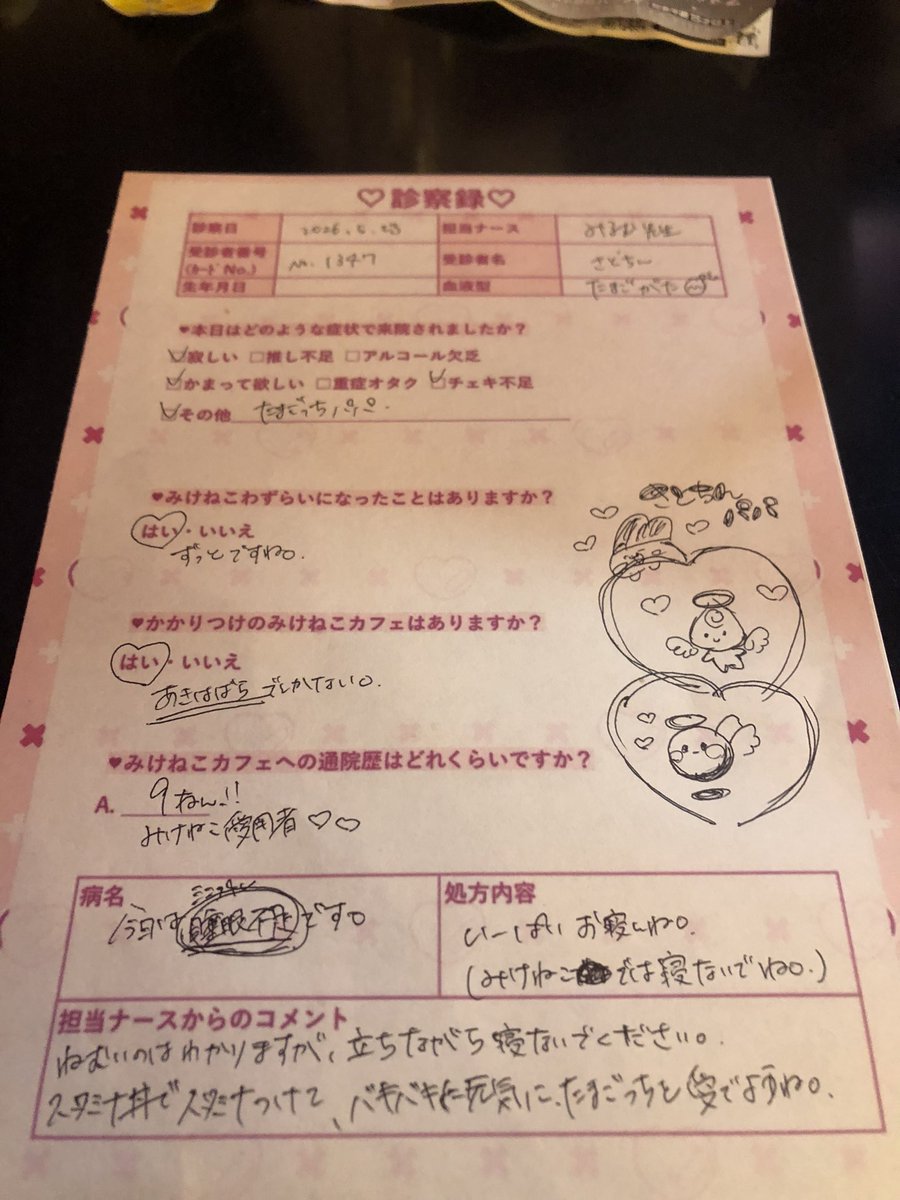 ♡診察録♡
診察日 2026.5.23 担当ナース みるお先生
受診者番号 (カードNo.) No. 1347 受診者名 さとちん
生年月日 血液型 たまごがた
♥本日はどのような症状で来院されましたか？
☑寂しい □推し不足 □アルコール欠乏
☑かまって欲しい □重症オタク ☑チェキ不足
☑その他 たまごっちパパ.
♥みけねこわずらいになったことはありますか？
はい・いいえ
ずっとですね。
さとちん
パパ
♥かかりつけのみけねこカフェはありますか？
はい・いいえ
あきはばらでしかない。
♥みけねこカフェへの通院歴はどれくらいですか？
A. 9ねん!!
みけねこ愛用者♡♡
病名
今日は睡眠不足です。
処方内容
いーぱいお寝んね。
(みけねこでは寝ないでね。)
担当ナースからのコメント
ねむいのはわかりますが、立ちながら寝ないでください。
スタミナ丼でスタミナつけて、バキバキに元気に、たまごっちと愛でようね。